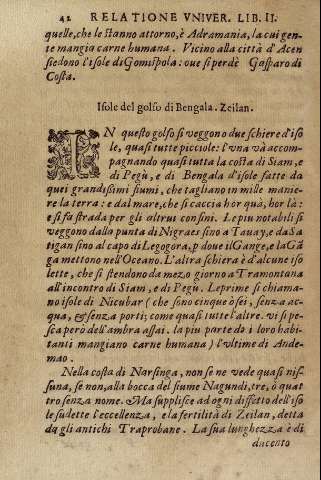 42 RELATIONE VNIVER. LIB. II.
quelle, che le stanno attorno, è Adramania, la cui gen
te mangia carne humana. Vicino alla città d'Acen
siedono l'isole di Gomispola: oue si perdè Gasparo di
Costa.
Isole del golfo di Bengala. Zeilan.
IN questo golfo si veggono due schiere d'iso
le, quasi tutte picciole: l'vna và accom-
pagnando quasi tutta la costa di Siam, e
di Pegù, e di Bengala d'isole fatte da
quei grandissimi fiumi, che tagliano in mille manie
re la terra: e dal mare, che si caccia hor quà, hor là:
e si fa strada per gli altrui confini. Le piu notabili si
veggono dalla punta di Nigraes sino a Tauay, e da Sa
tigan sino al capo di Legogora, p doue il Gange, e la Gā
ga mettono nell'Oceano. L'altra schiera è d'alcune iso
lette, che si stendono da mezo giorno a Tramontana
all'incontro di Siam, e di Pegù. Le prime si chiama-
no isole di Nicubar (che sono cinque ò sei, senza ac-
qua, & senza porti; come quasi tutte l'altre. vi si pe-
sca però dell'ambra assai. la piu parte do i loro habi-
tanti mangiano carne humana) l'vltime di Ande-
mao.
Nella costa di Narsinga, non se ne vede quasi nis-
suna, se non, alla bocca del fiume Nagundi, tre, ò quat
tro senza nome. Ma supplisce ad ogni diffetto dell'iso
le sudette l'eccellenza, e la fertilità di Zeilan, detta
da gli antichi Traprobane. La sua lunghezza è di
ducento